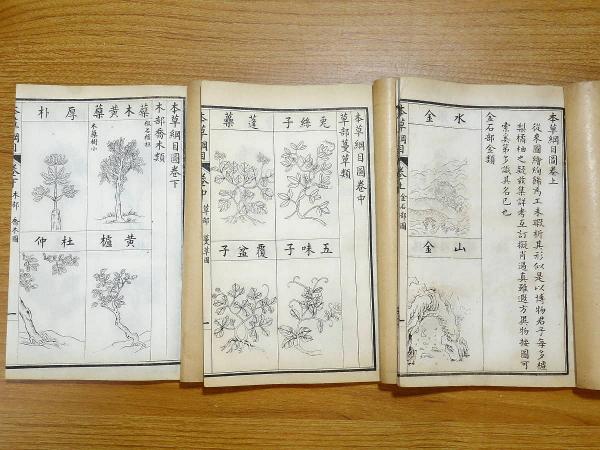 本草綱目圖卷上
從來圖繪殉餙為工未覩析其形似是以博物君子每多櫨
梨橘柚之疑兹集詳考互訂擬肖逼真雖遐方異物按圖可
索盖第多識其名已也
金石部金類
水金
山金
本草綱目 卷上 金石部圖
本草綱目圖卷中
草部蔓草類
兎絲子
蓬藥
五味子
覆盆子
本草綱目 卷中 草部 蔓草圖
本草綱目圖卷下
木部喬木類
蘗木黄蘗
俗名檀桓
木蘗樹小
厚朴
黄櫨
杜仲
本草綱目 卷下 木部 喬木圖